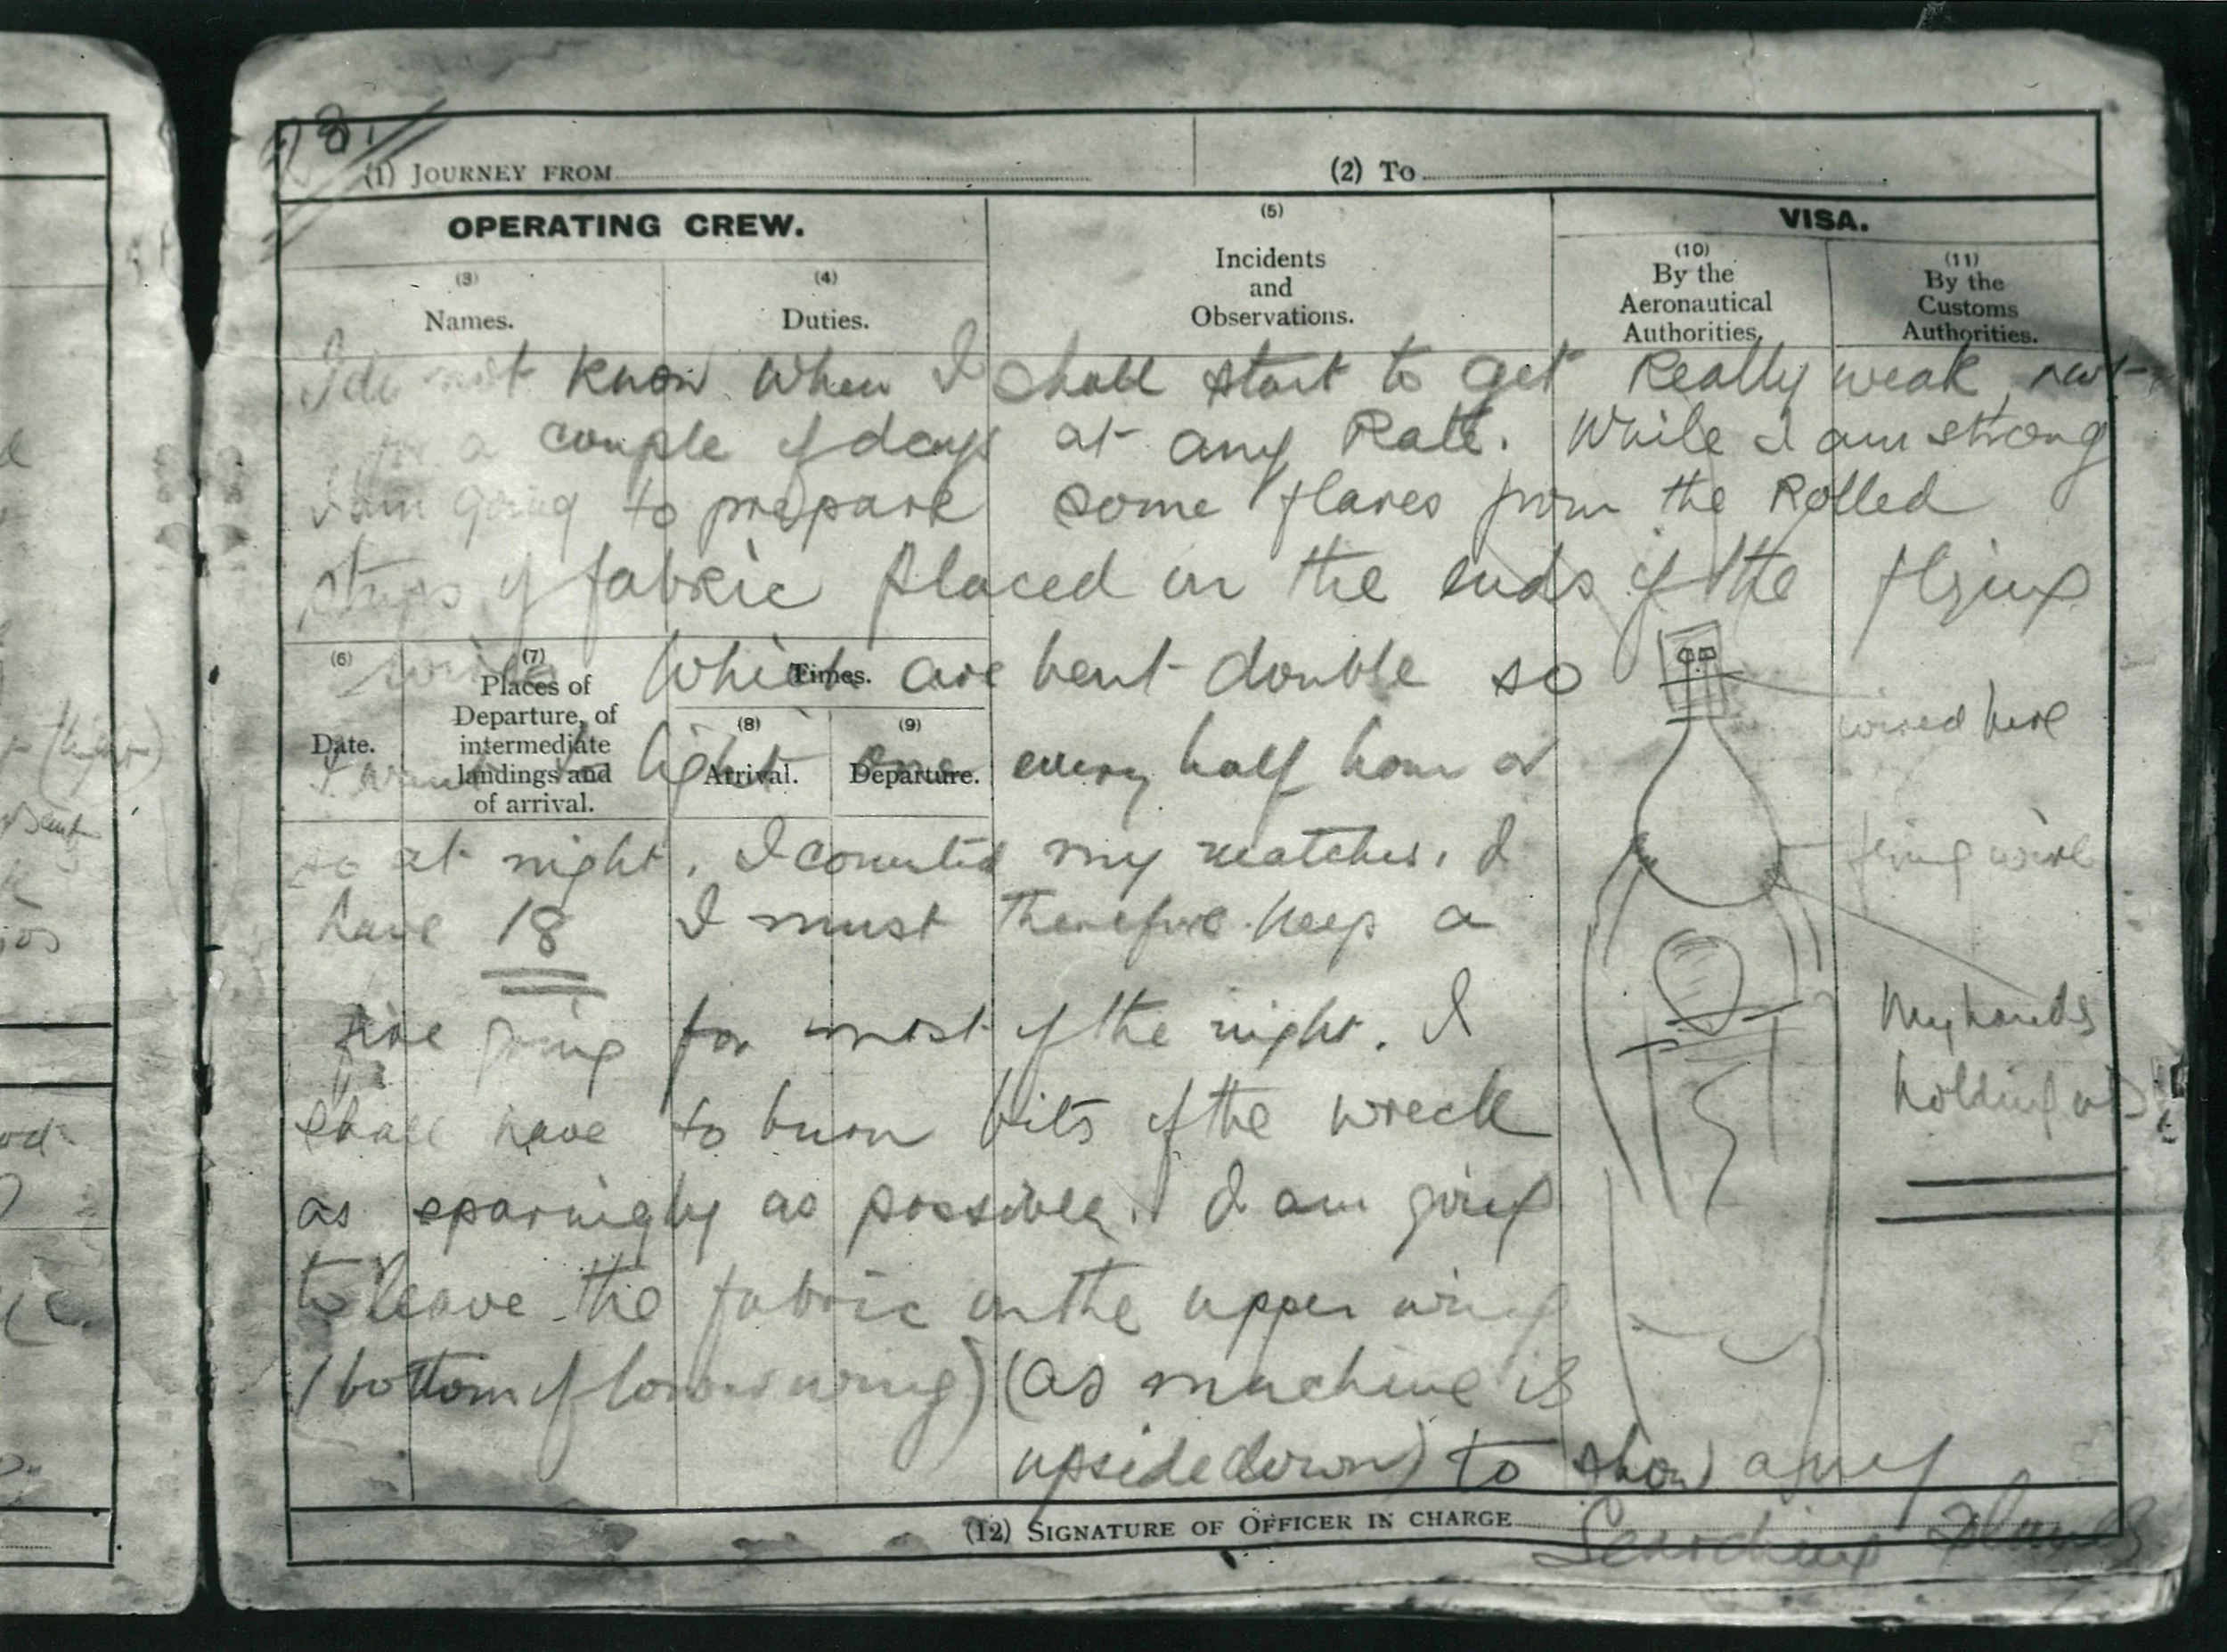 8.
(1) JOURNEY FROM
(2) To
OPERATING CREW.
(3)
Names.
(4)
Duties.
(5)
Incidents
and
Observations.
VISA.
(10)
By the
Aeronautical
Authorities.
(11)
By the
Customs
Authorities.
I do not know when I shall start to get Really weak, not
for a couple of days at any Rate. While I am strong
I am going to prepare some flares from the Rolled
strips of fabric placed in the ends of the flying
wires which are bent double so
I want to light one every half hour or
so at night. I counted my matches. I
have 18 I must therefore keep a
fire going for most of the night. I
shall have to burn bits of the wreck
as sparingly as possible. I am going
to leave the fabric on the upper wing
(bottom of lower wing) (as machine is
upsidedown) to show any
Searching planes
wired here
flying wire
My hands
holding it
(6)
Date.
(7)
Places of
Departure, of
intermediate
landings and
of arrival.
Times.
(8)
Arrival.
(9)
Departure.
(12) SIGNATURE OF OFFICER IN CHARGE